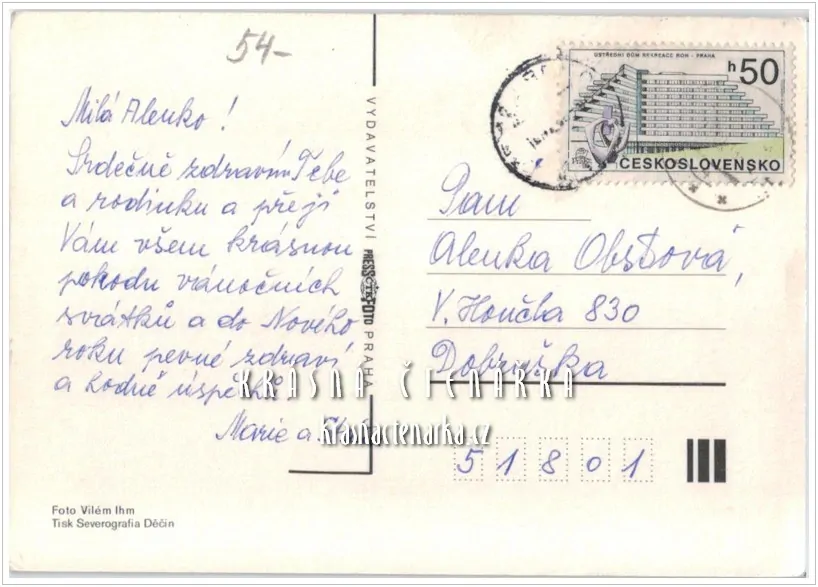 54-
Milá Alenko!
Srdečně zdravím Tebe
a rodinku a přeji
Vám všem krásnou
pohodu vánočních
svátků a do Nového
roku pevné zdraví
a hodně úspěchů
Marie a
VYDAVATELSTVÍ PRESSFOTO PRAHA
ÚSTŘEDNÍ DOM REKREACE ROH - PRAHA
h50
ČESKOSLOVENSKO
Paní
Alenka Obstová,
V. Houčla 830
Dobruška
51801
KRÁSNÁ ČTENÁRKA
krasnactenarka.cz
Foto Vilém Ihm
Tisk Severografia Děčín